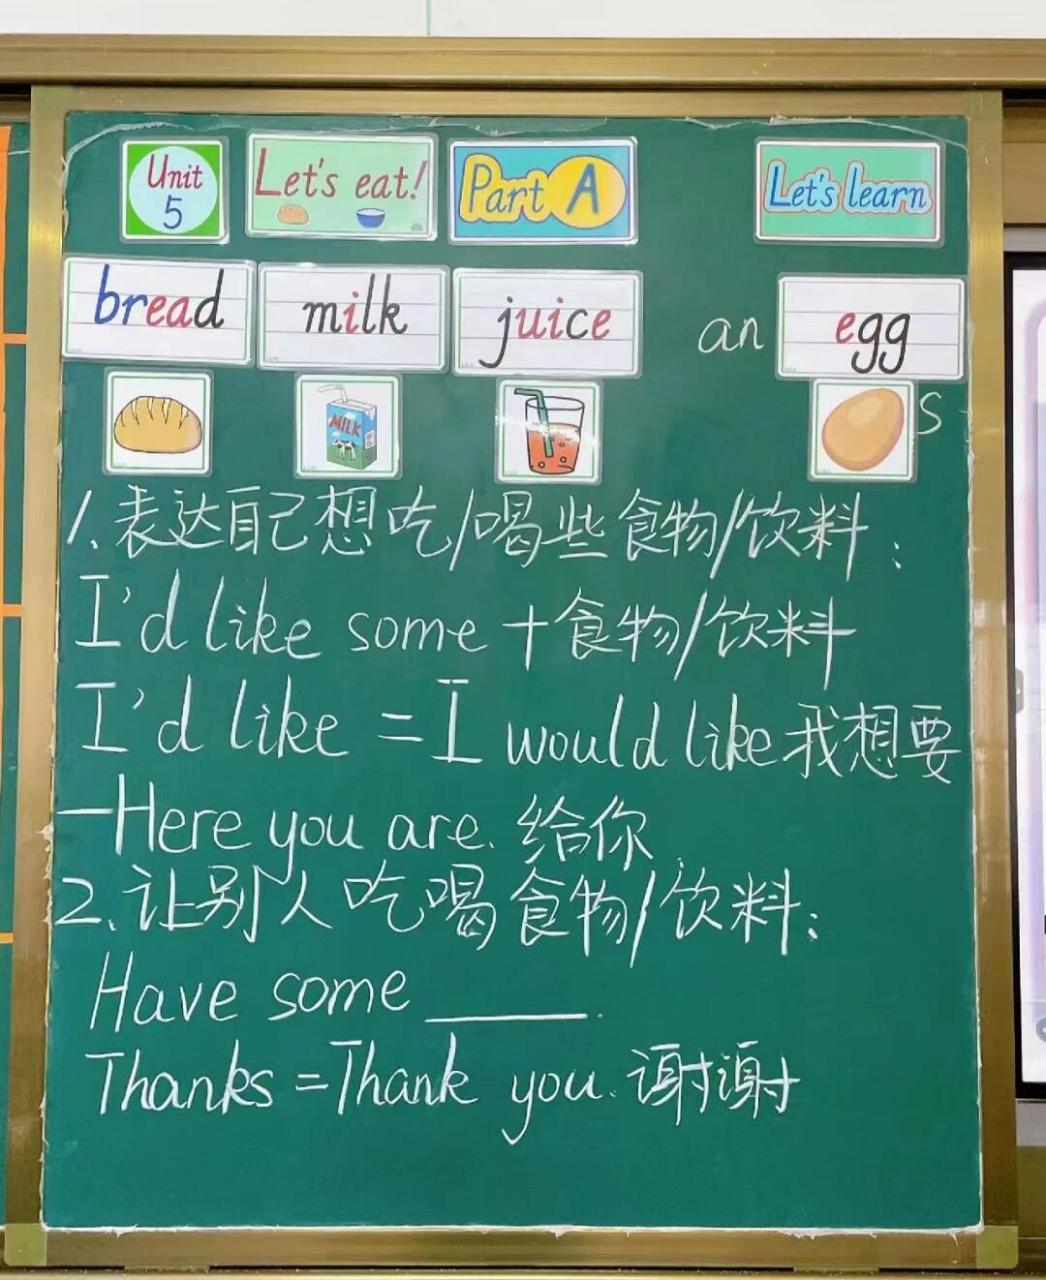 Unit 5 Let's eat! Part A Let's learn
bread milk juice an egg
MILK s
1.表达自己想吃/喝些食物/饮料:
I'd like some+食物/饮料
I'd like = I would like我想要
—Here you are. 给你.
2.让别人吃喝食物/饮料:
Have some ______.
Thanks=Thank you. 谢谢